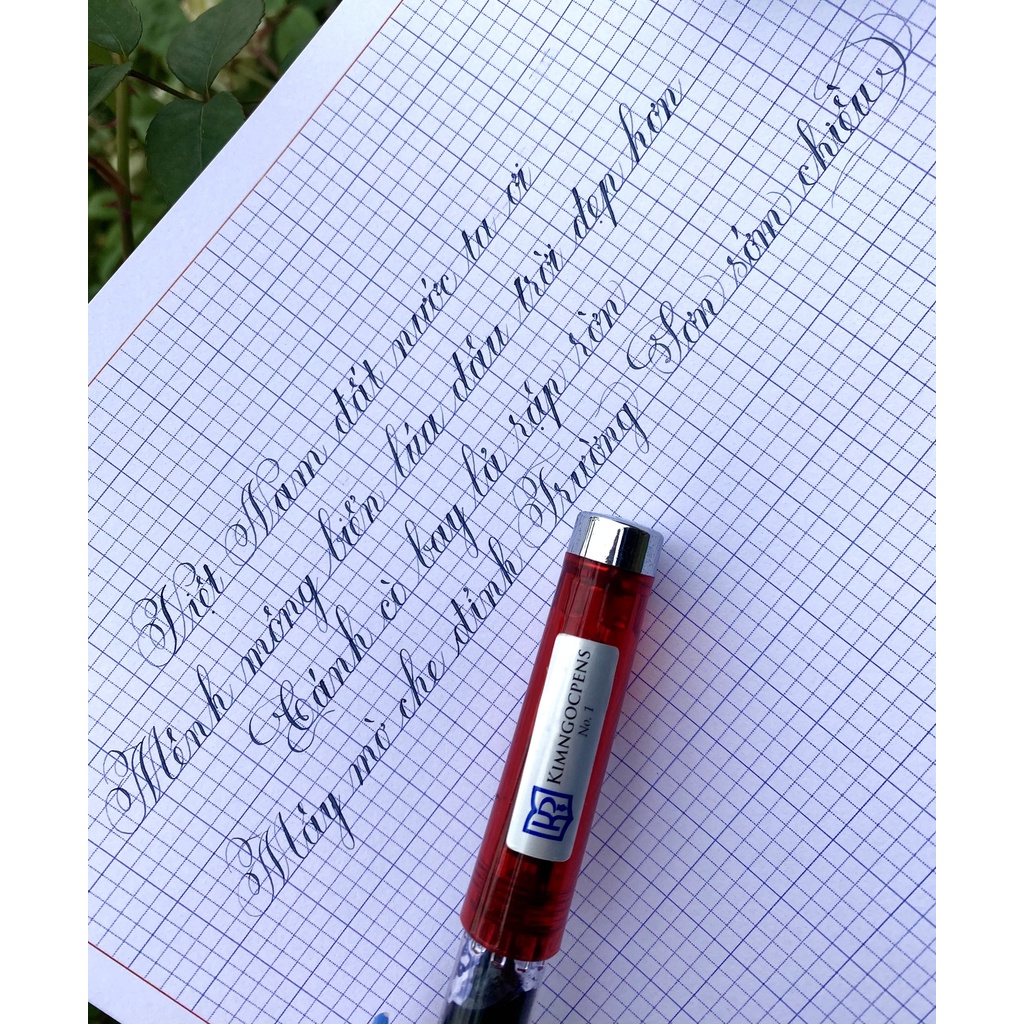 Việt Nam đất nước ta ơi
Mênh mông biển lúa đâu trời đẹp hơn
Cánh cò bay lả rập rờn
Mây mờ che đỉnh Trường Sơn sớm chiều
KIMNGOCPENS
No. 1